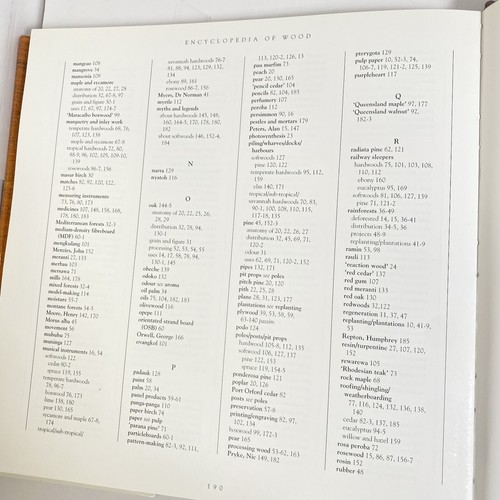 ENCYCLOPEDIA OF WOOD
mangeao 108
mangrove 34
mansonia 108
maple and sycamore
anatomy of 20, 22, 27, 28
distribution 32, 67-8, 97
grain and figure 30-1
uses 12, 67, 97, 174-7
'Maracaibo boxwood' 99
marquetry and inlay work
temperate hardwoods 68, 76,
107, 123, 138
maple and sycamore 67-8
tropical hardwoods 72, 80,
88-9, 96, 102, 105, 109-10,
139
rosewoods 86-7, 156
masur birch 30
matches 82, 92, 120, 122,
125-6
measuring instruments
73, 76, 80, 173
medicines 107, 148, 156, 168,
178, 180, 183
Mediterranean forests 32-3
medium-density fibreboard
(MDF) 60-1
mengkulang 101
Menzies, John 152
meranti 27, 133
merbau 103
messawa 75
mills 164, 178
mixed forests 32-4
model-making 114
moisture 55-7
montane forests 34-5
Moore, Henry 142, 170
Morus alba 45
movement 56
muhuhu 75
muninga 127
musical instruments 16, 54
softwoods 122
cedar 90-2
spruce 119, 155
temperate hardwoods
78, 96-7
boxwood 76, 173
lime 138, 180
pear 130, 165
sycamore and maple 67-8,
174
tropical/sub-tropical/
savannah hardwoods 76-7
81, 88, 94, 123, 129, 132,
134
ebony 89, 161
rosewood 86-7, 156
Myers, Dr Norman 41
myrtle 112
myths and legends
about hardwoods 145, 148,
160, 164-5, 170, 178, 180,
182
about softwoods 146, 152-4,
184
N
narra 129
nyatoh 116
O
oak 144-5
anatomy of 20, 22, 25, 26,
28, 29
distribution 32, 78, 94,
130-1
grain and figure 31
processing 52, 53, 54, 55
uses 14, 17, 58, 78, 94,
130-1, 145
obeche 139
odoko 132
odour see aroma
oil palm 34
oils 75, 104, 182, 183
olivewood 116
opepe 111
orientated strand board
(OSB) 60
Orwell, George 166
ovangkol 101
P
padauk 128
paint 58
palm 20, 34
panel products 59-61
panga-panga 110
paper birch 74
paper see pulp
'parana pine' 71
particleboards 60-1
pattern-making 82-3, 92, 111,
113, 120-2, 126, 13
pau marfim 73
peach 20
pear 20, 130, 165
'pencil cedar' 104
pencils 82, 104, 183
perfumery 107
peroba 112
persimmon 90, 16
pestles and mortars 179
Peters, Alan 15, 147
photosynthesis 23
piling/wharves/docks/
harbours
softwoods 127
pine 120, 122
temperate hardwoods 95, 112,
159
elm 140, 171
tropical/sub-tropical/
savannah hardwoods 70, 83,
90-1, 100, 108, 110, 115,
117-18, 135
pine 45, 152-3
anatomy of 20, 22, 26, 27
distribution 32, 45, 69, 71,
120-2
odour 31
uses 62, 69, 71, 120-2, 152
pipes 132, 171
pit props see poles
pitch pine 20, 120
pith 22, 25, 28
plane 28, 31, 123, 177
plantations see replanting
plywood 39, 53, 58, 59,
63-140 passim
podo 124
poles/posts/pit props
hardwood 105-8, 112, 135
softwood 106, 127, 137
pine 122, 153
spruce 119, 154-5
ponderosa pine 121
poplar 20, 126
Port Orford cedar 82
posts see poles
preservation 57-8
printing/engraving 82, 97,
102, 104
boxwood 99, 172-3
pear 165
processing wood 53-62, 163
Pryke, Nic 149, 182
pterygota 129
pulp paper 10, 52-3, 74,
106-7, 119, 121-2, 125, 139
purpleheart 117
Q
'Queensland maple' 97, 177
'Queensland walnut' 92,
182-3
R
radiata pine 62, 121
railway sleepers
hardwoods 75, 101, 103, 108,
110, 112
ebony 160
eucalyptus 95, 169
softwoods 81, 106, 127, 139
pine 71, 121-2
rainforests 36-49
deforested 14, 15, 36-41
distribution 34-5, 36
projects 48-9
replanting/plantations 41-9
ramin 53, 98
rauli 113
'reaction wood' 24
'red cedar' 137
red gum 107
red meranti 133
red oak 130
redwoods 32, 122
regeneration 11, 37, 47
replanting/plantations 10, 41-9,
53
Repton, Humphrey 185
resin/turpentine 27, 107, 120,
152
rewarewa 105
'Rhodesian teak' 73
rock maple 68
roofing/shingling/
weatherboarding
77, 116, 124, 132, 136, 138,
140
cedar 82-3, 137, 185
eucalyptus 94-5
willow and hazel 159
rosa peroba 72
rosewood 15, 86, 87, 156-7
rosin 152
rubber 48
190